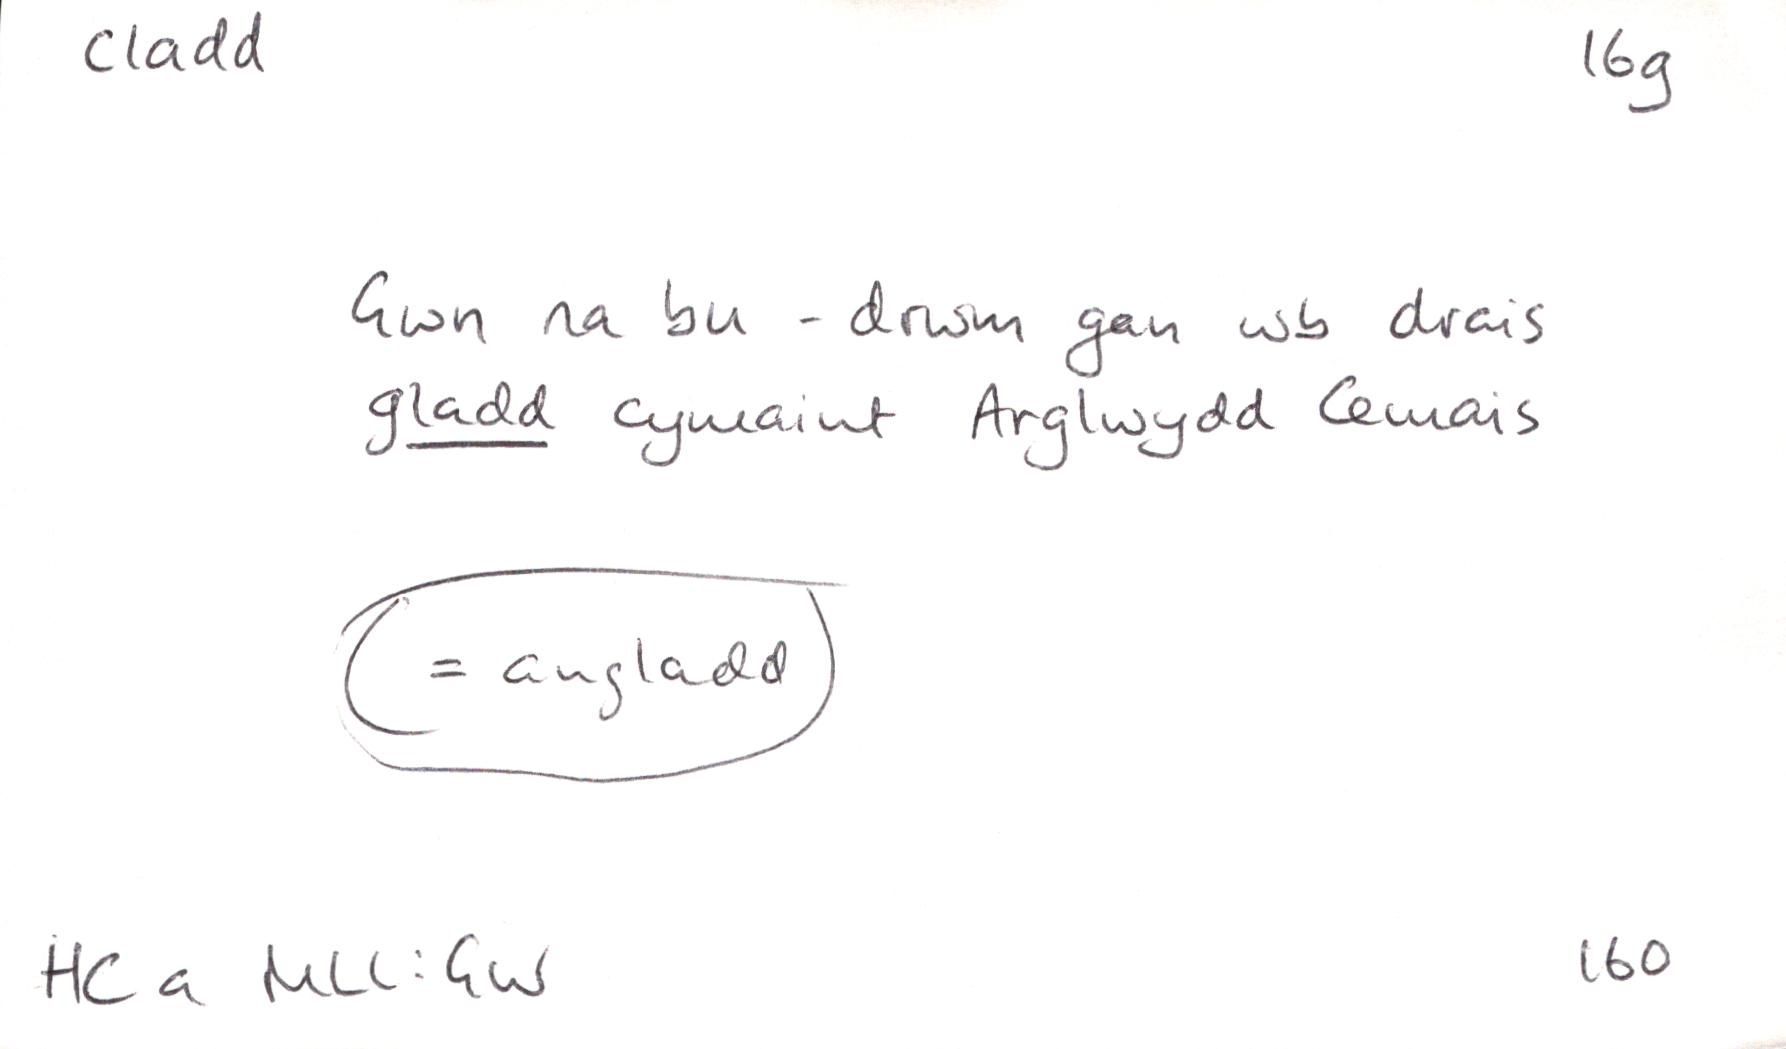 cladd 16g
Gwn na bu - drwm gan wb drais
gladd cymaint Arglwydd Cemais
= angladd
HC a MLl: GW 160